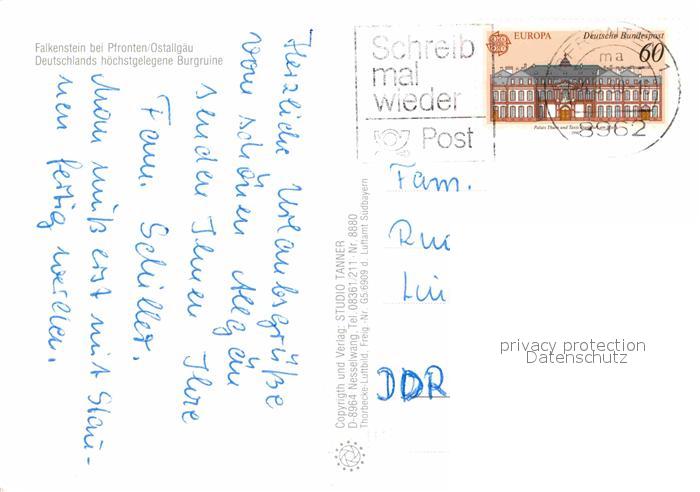 Falkenstein bei Pfronten/Ostallgäu
Deutschlands höchstgelegene Burgruine
Herzliche Urlaubsgrüße
vom schönen Allgäu
senden Ihnen Ihre
Fam. Schüller.
Man muß erst mit Stau-
nen fertig werden.
Copyrigth und Verlag: STUDIO TANNER
D-8964 Nesselwang · Tel. 08361/211 · Nr. 8880
Thorbecke-Luftbild. Freig.-Nr. G5/6909 d. Luftamt Südbayern
Schreib
mal
wieder
Post
EUROPA
Deutsche Bundespost
60
ma
8962
Fam.
DDR
privacy protection
Datenschutz